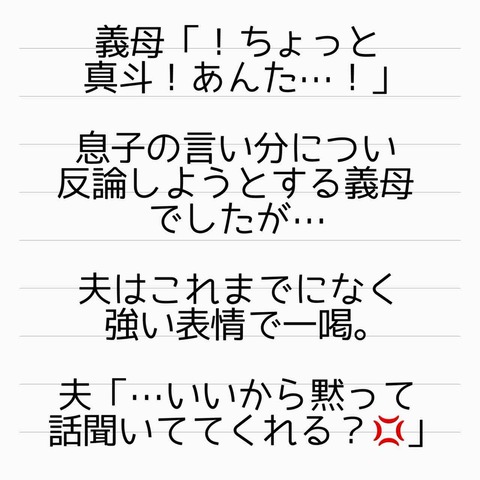 義母「！ちょっと
真斗！あんた…！」
息子の言い分につい
反論しようとする義母
でしたが…
夫はこれまでになく
強い表情で一喝。
夫「…いいから黙って
話聞いててくれる？💢」